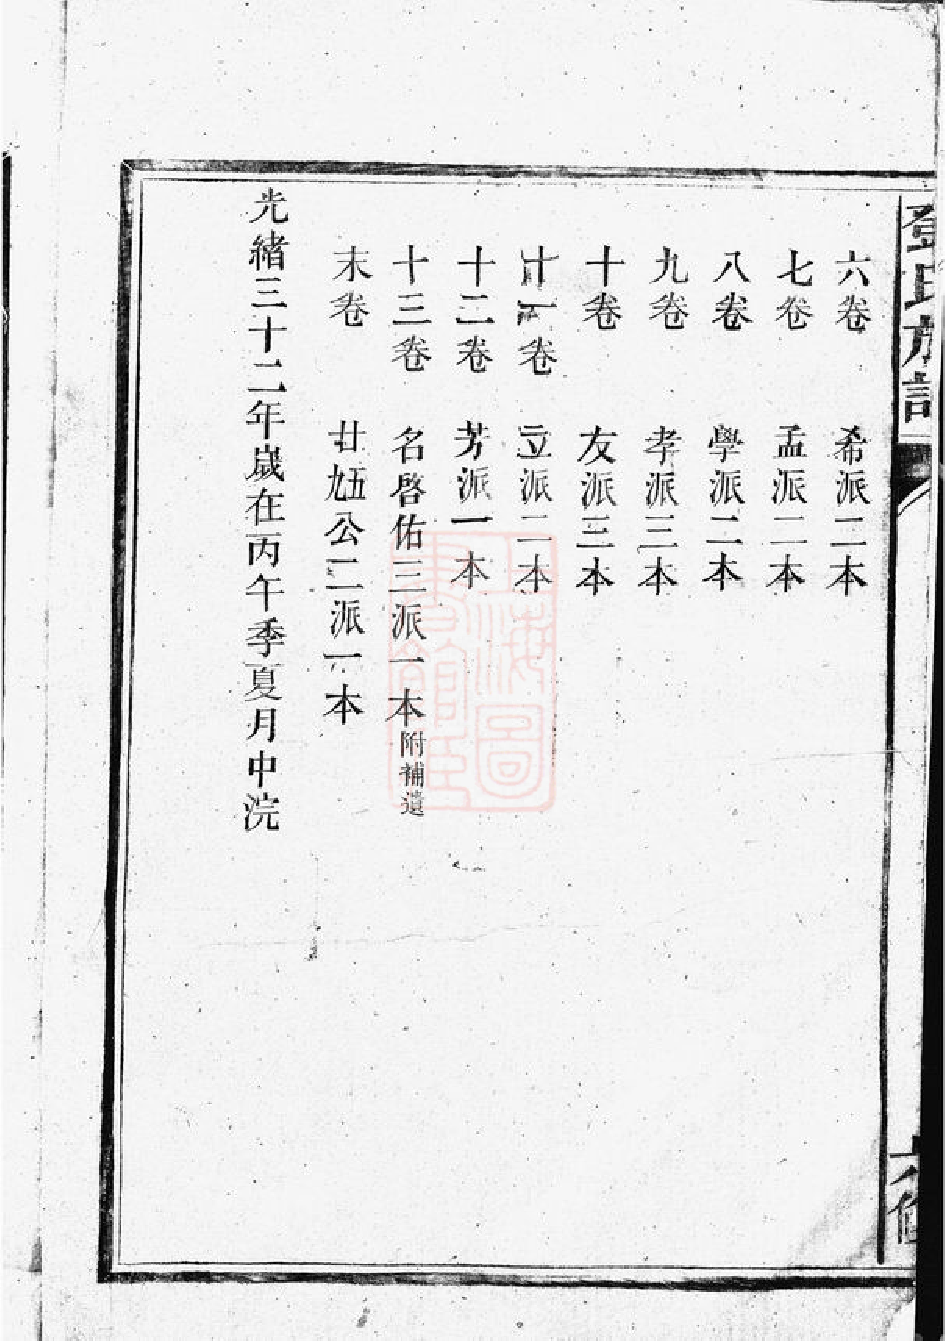 鄧氏族譜
六修
六卷 希派二本
七卷 孟派二本
八卷 學派二本
九卷 孝派三本
十卷 友派三本
十一卷 立派二本
十二卷 芳派一本
十三卷 名啓佑三派一本附補遺
末卷 廿九五公二派一本
光緒三十二年歲在丙午季夏月中浣
上海圖
書館藏